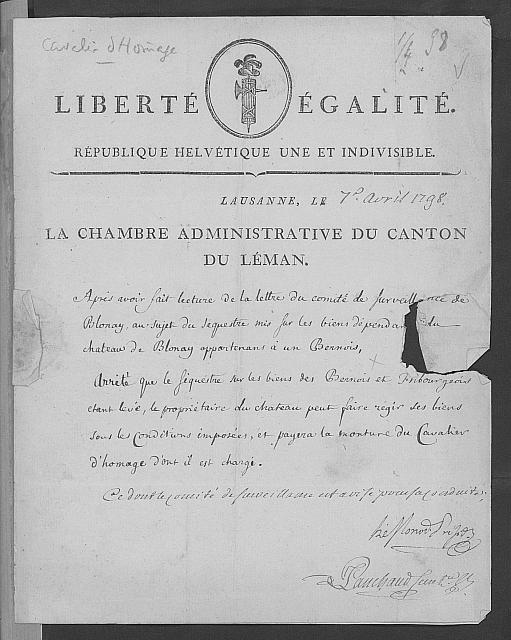 Cavalier d'Homage
98
LIBERTÉ ÉGALITÉ.
RÉPUBLIQUE HELVÉTIQUE UNE ET INDIVISIBLE.
LAUSANNE, LE 7e. Avril 1798.
LA CHAMBRE ADMINISTRATIVE DU CANTON
DU LÉMAN.
Après avoir fait lecture de la lettre du comité de Surveillance de
Blonay, au sujet du Sequestre mis sur les biens dépendans du
chateau de Blonay appartenans à un Bernois,
Arrête que le Séquestre sur les biens des Bernois et Fribourgeois
etant levé, le propriétaire du chateau peut faire regir ses biens
sous les Conditions imposées, et payera la monture du Cavalier
d'homage dont il est chargé.
Ce dont le comité de surveillance est avisé pour sa conduite,
Monod
Panchaud